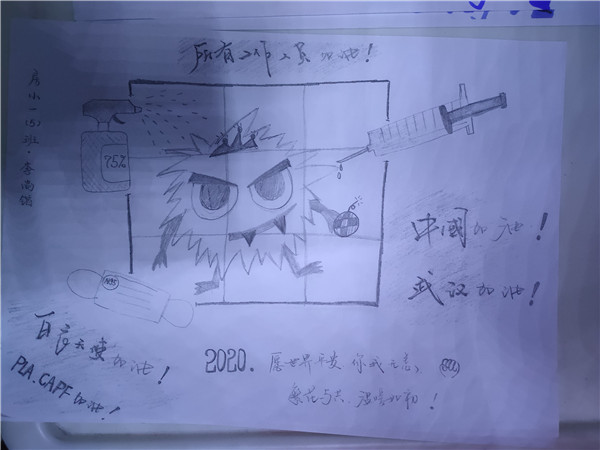 所有工作人员加油!
房小一(5)班
75%
N95
中国加油!
武汉加油!
白衣天使加油!
PLA.CAPF加油!
2020. 愿世界平安 你我无恙、
繁花与共 如初!